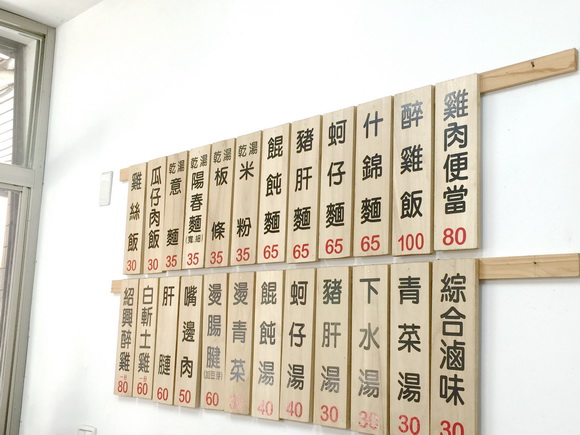 雞肉便當 80
醉雞飯 100
什錦麵 65
蚵仔麵 65
豬肝麵 65
餛飩麵 65
乾湯 米粉 35
乾湯 板條 35
乾湯 陽春麵 (寬細) 35
乾湯 意麵 35
瓜仔肉飯 30
雞絲飯 30
綜合滷味 30
青菜湯 30
下水湯 30
豬肝湯 30
蚵仔湯 40
餛飩湯 40
燙青菜 30
燙腸腱 60
嘴邊肉 50
肝 60
白斬土雞 60
紹興醉雞 80